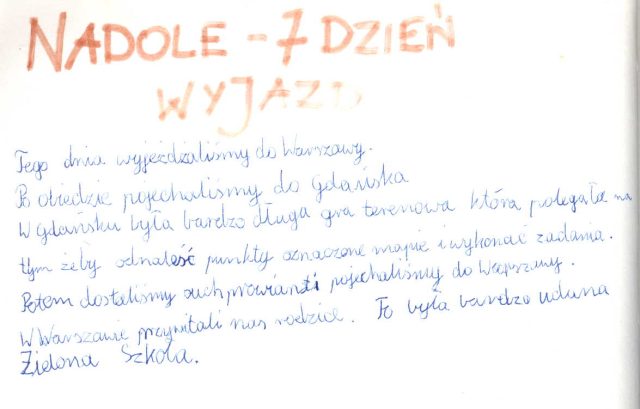 NADOLE - 7 DZIEŃ
WYJAZD
Tego dnia wyjeżdzaliśmy do Warszawy.
Po obiedzie pojechaliśmy do Gdańska
W gdańsku była bardzo długa gra terenowa która polegała na
tym żeby odnaleść punkty oznaczone mapie i wykonać zadania.
Potem dostaliśmy suchprowiant i pojechaliśmy do Warszawy.
W Warszawie przywitali nas rodzice. To była bardzo udana
Zielona Szkoła.